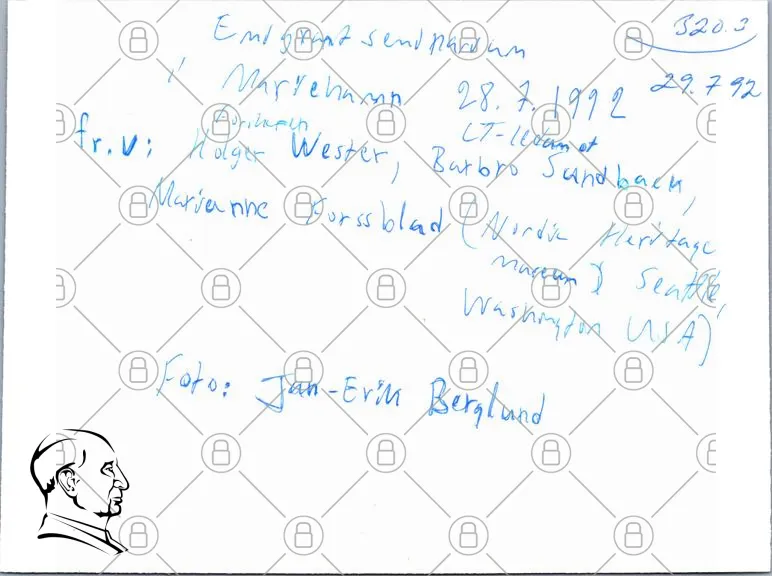 320.3
Emigrantseminarium
i Mariehamn 28.7.1992 29.7 92
LT-ledamot
fr.v: Holger Wester, Barbro Sandback,
Marianne Forssblad (Nordic Heritage
museum) Seattle,
Washington USA)
Foto: Jan-Erik Berglund